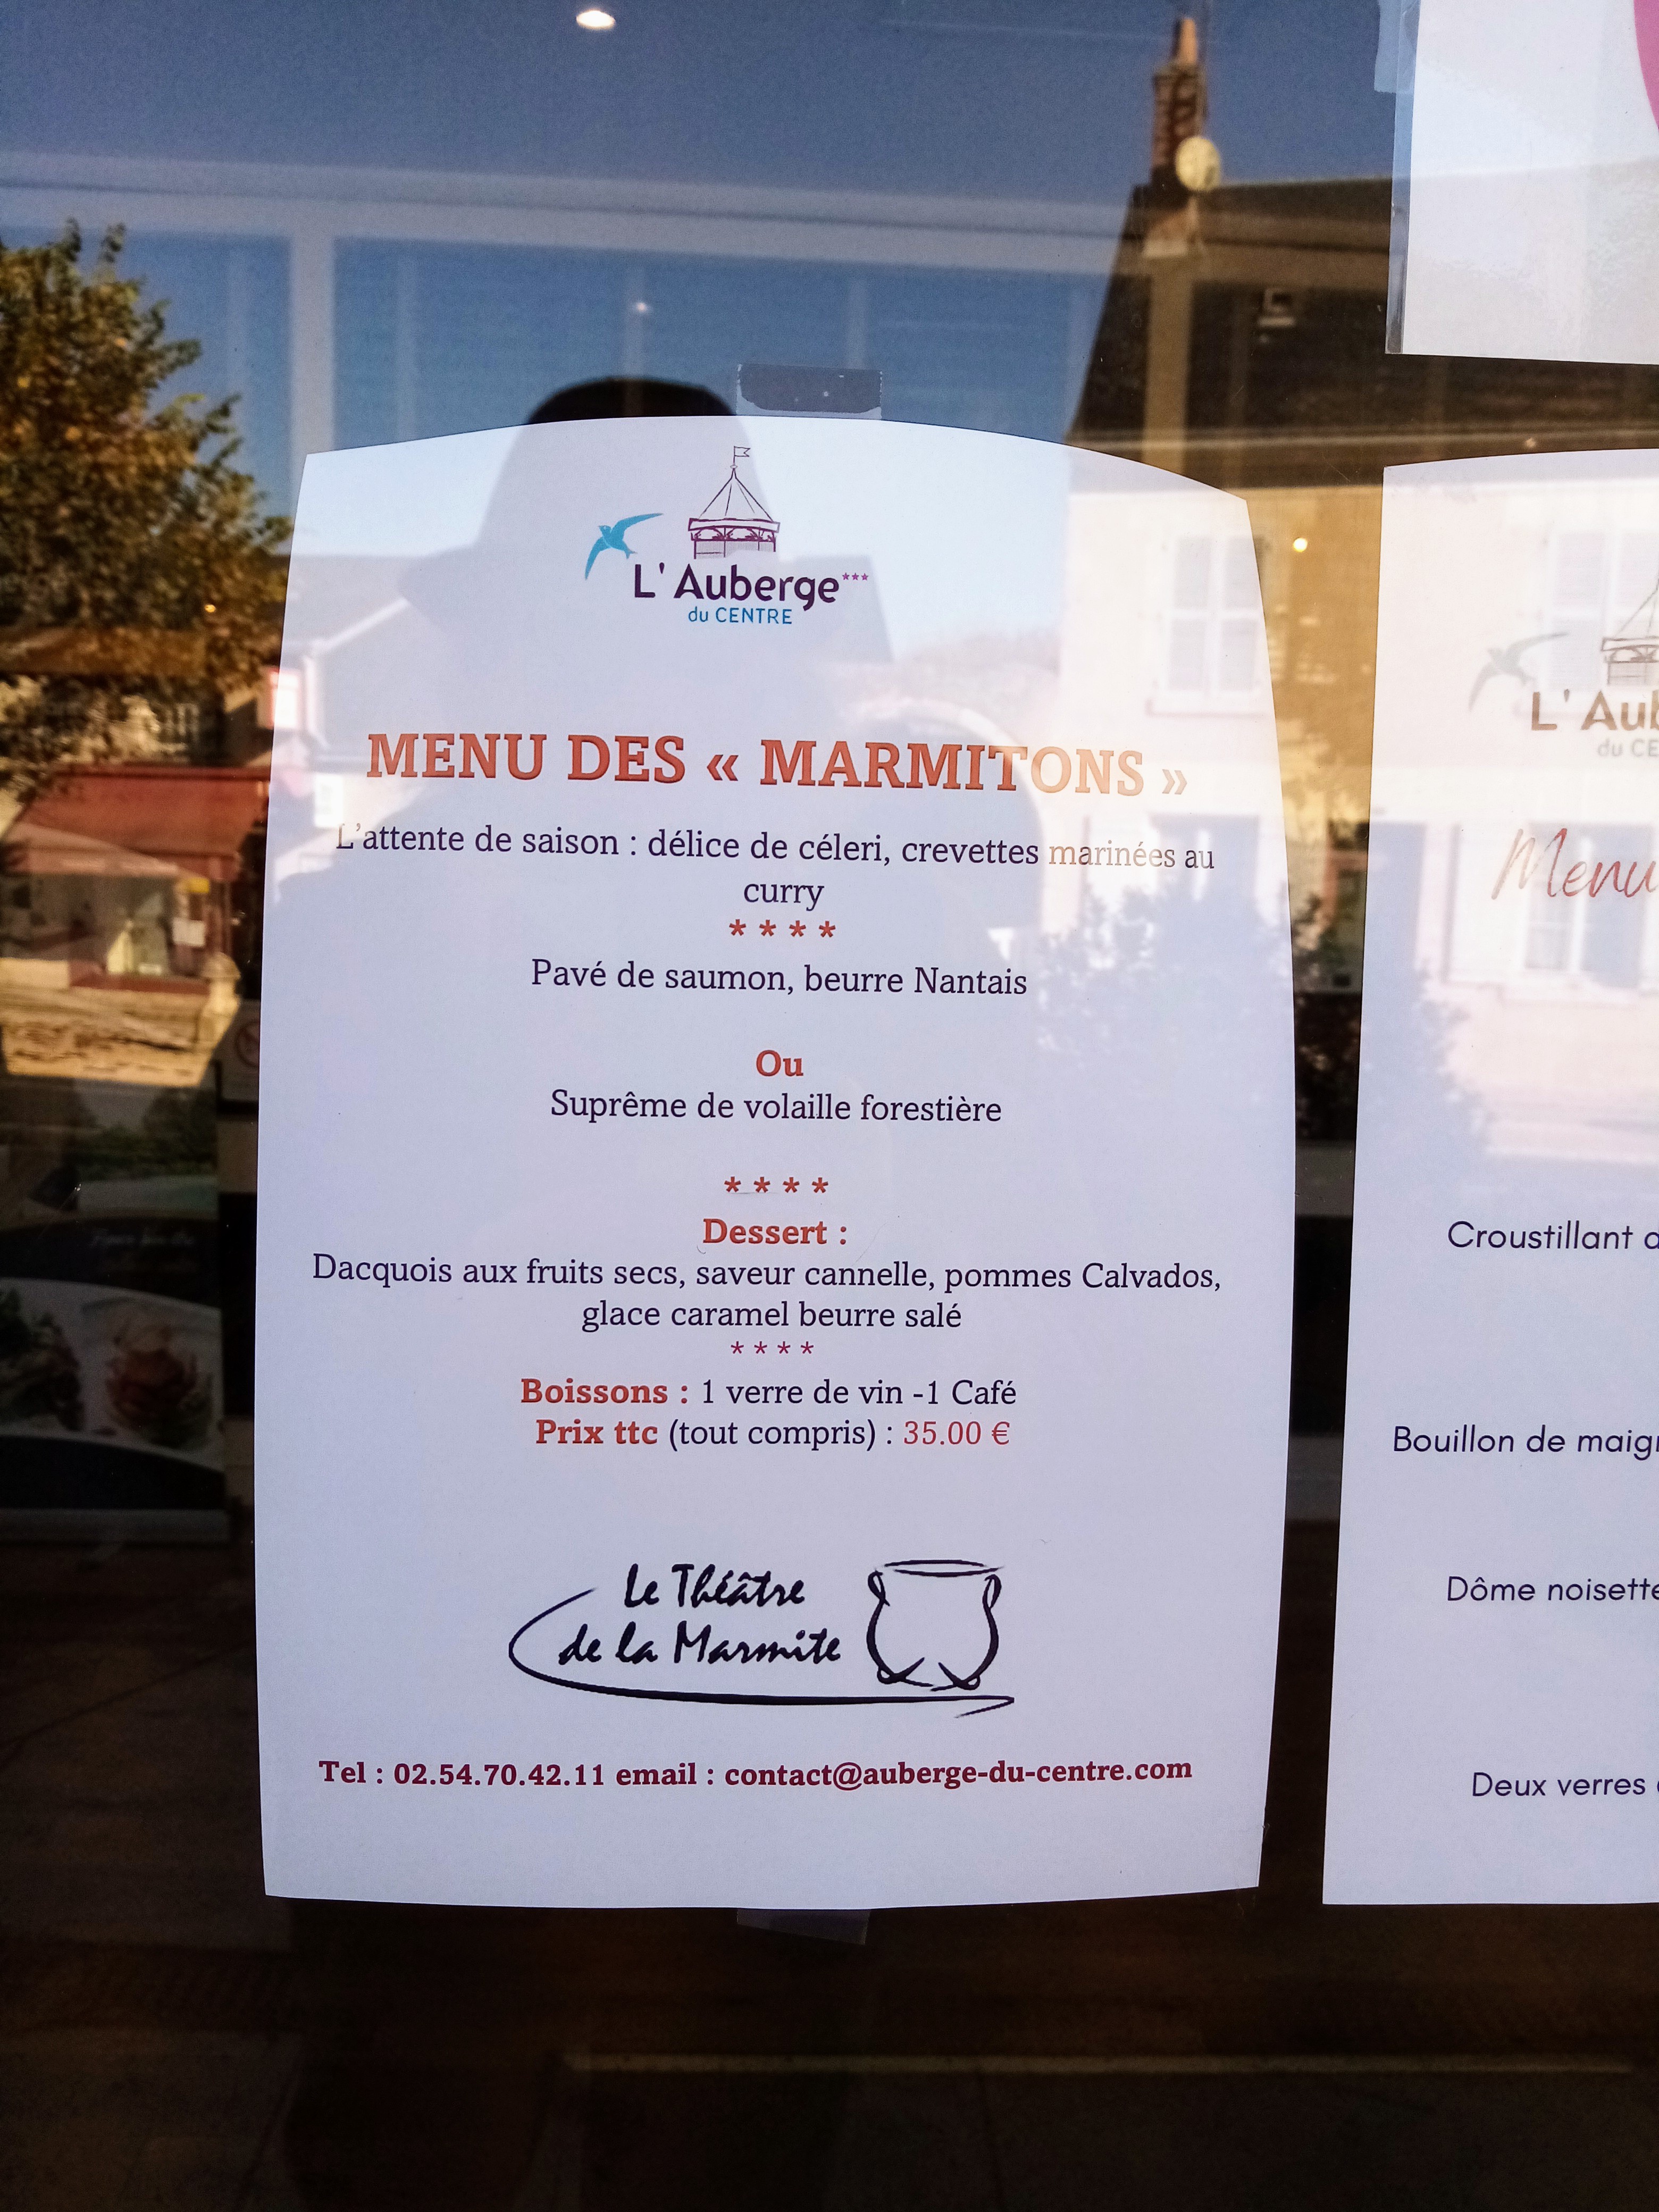 L' Auberge***
du CENTRE
MENU DES « MARMITONS »
L'attente de saison : délice de céleri, crevettes marinées au
curry
* * * *
Pavé de saumon, beurre Nantais
Ou
Suprême de volaille forestière
* * * *
Dessert :
Dacquois aux fruits secs, saveur cannelle, pommes Calvados,
glace caramel beurre salé
* * * *
Boissons : 1 verre de vin -1 Café
Prix ttc (tout compris) : 35.00 €
Le Théâtre
de la Marmite
Tel : 02.54.70.42.11 email : contact@auberge-du-centre.com
L' Aub
du CE
Menu
Croustillant d
Bouillon de maig
Dôme noisette
Deux verres